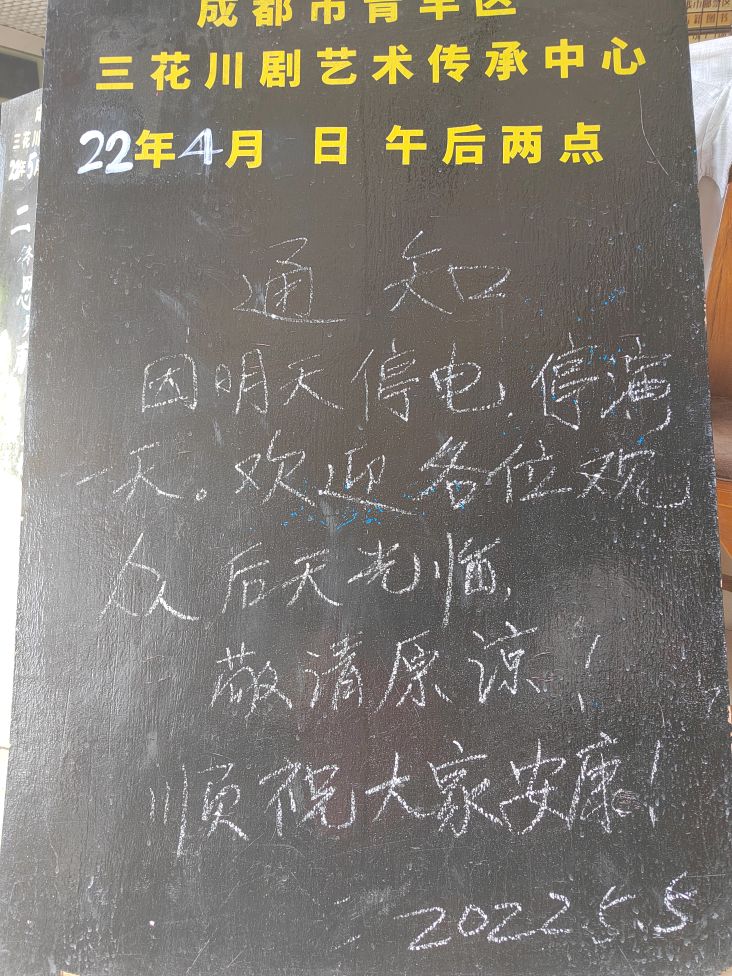 成都市青羊区
三花川剧艺术传承中心
22年4月 日 午后两点
通知
因明天停电,停演
一天。欢迎各位观
众后天光临,
敬请原谅!
顺祝大家安康!
2022 5.5
三花川